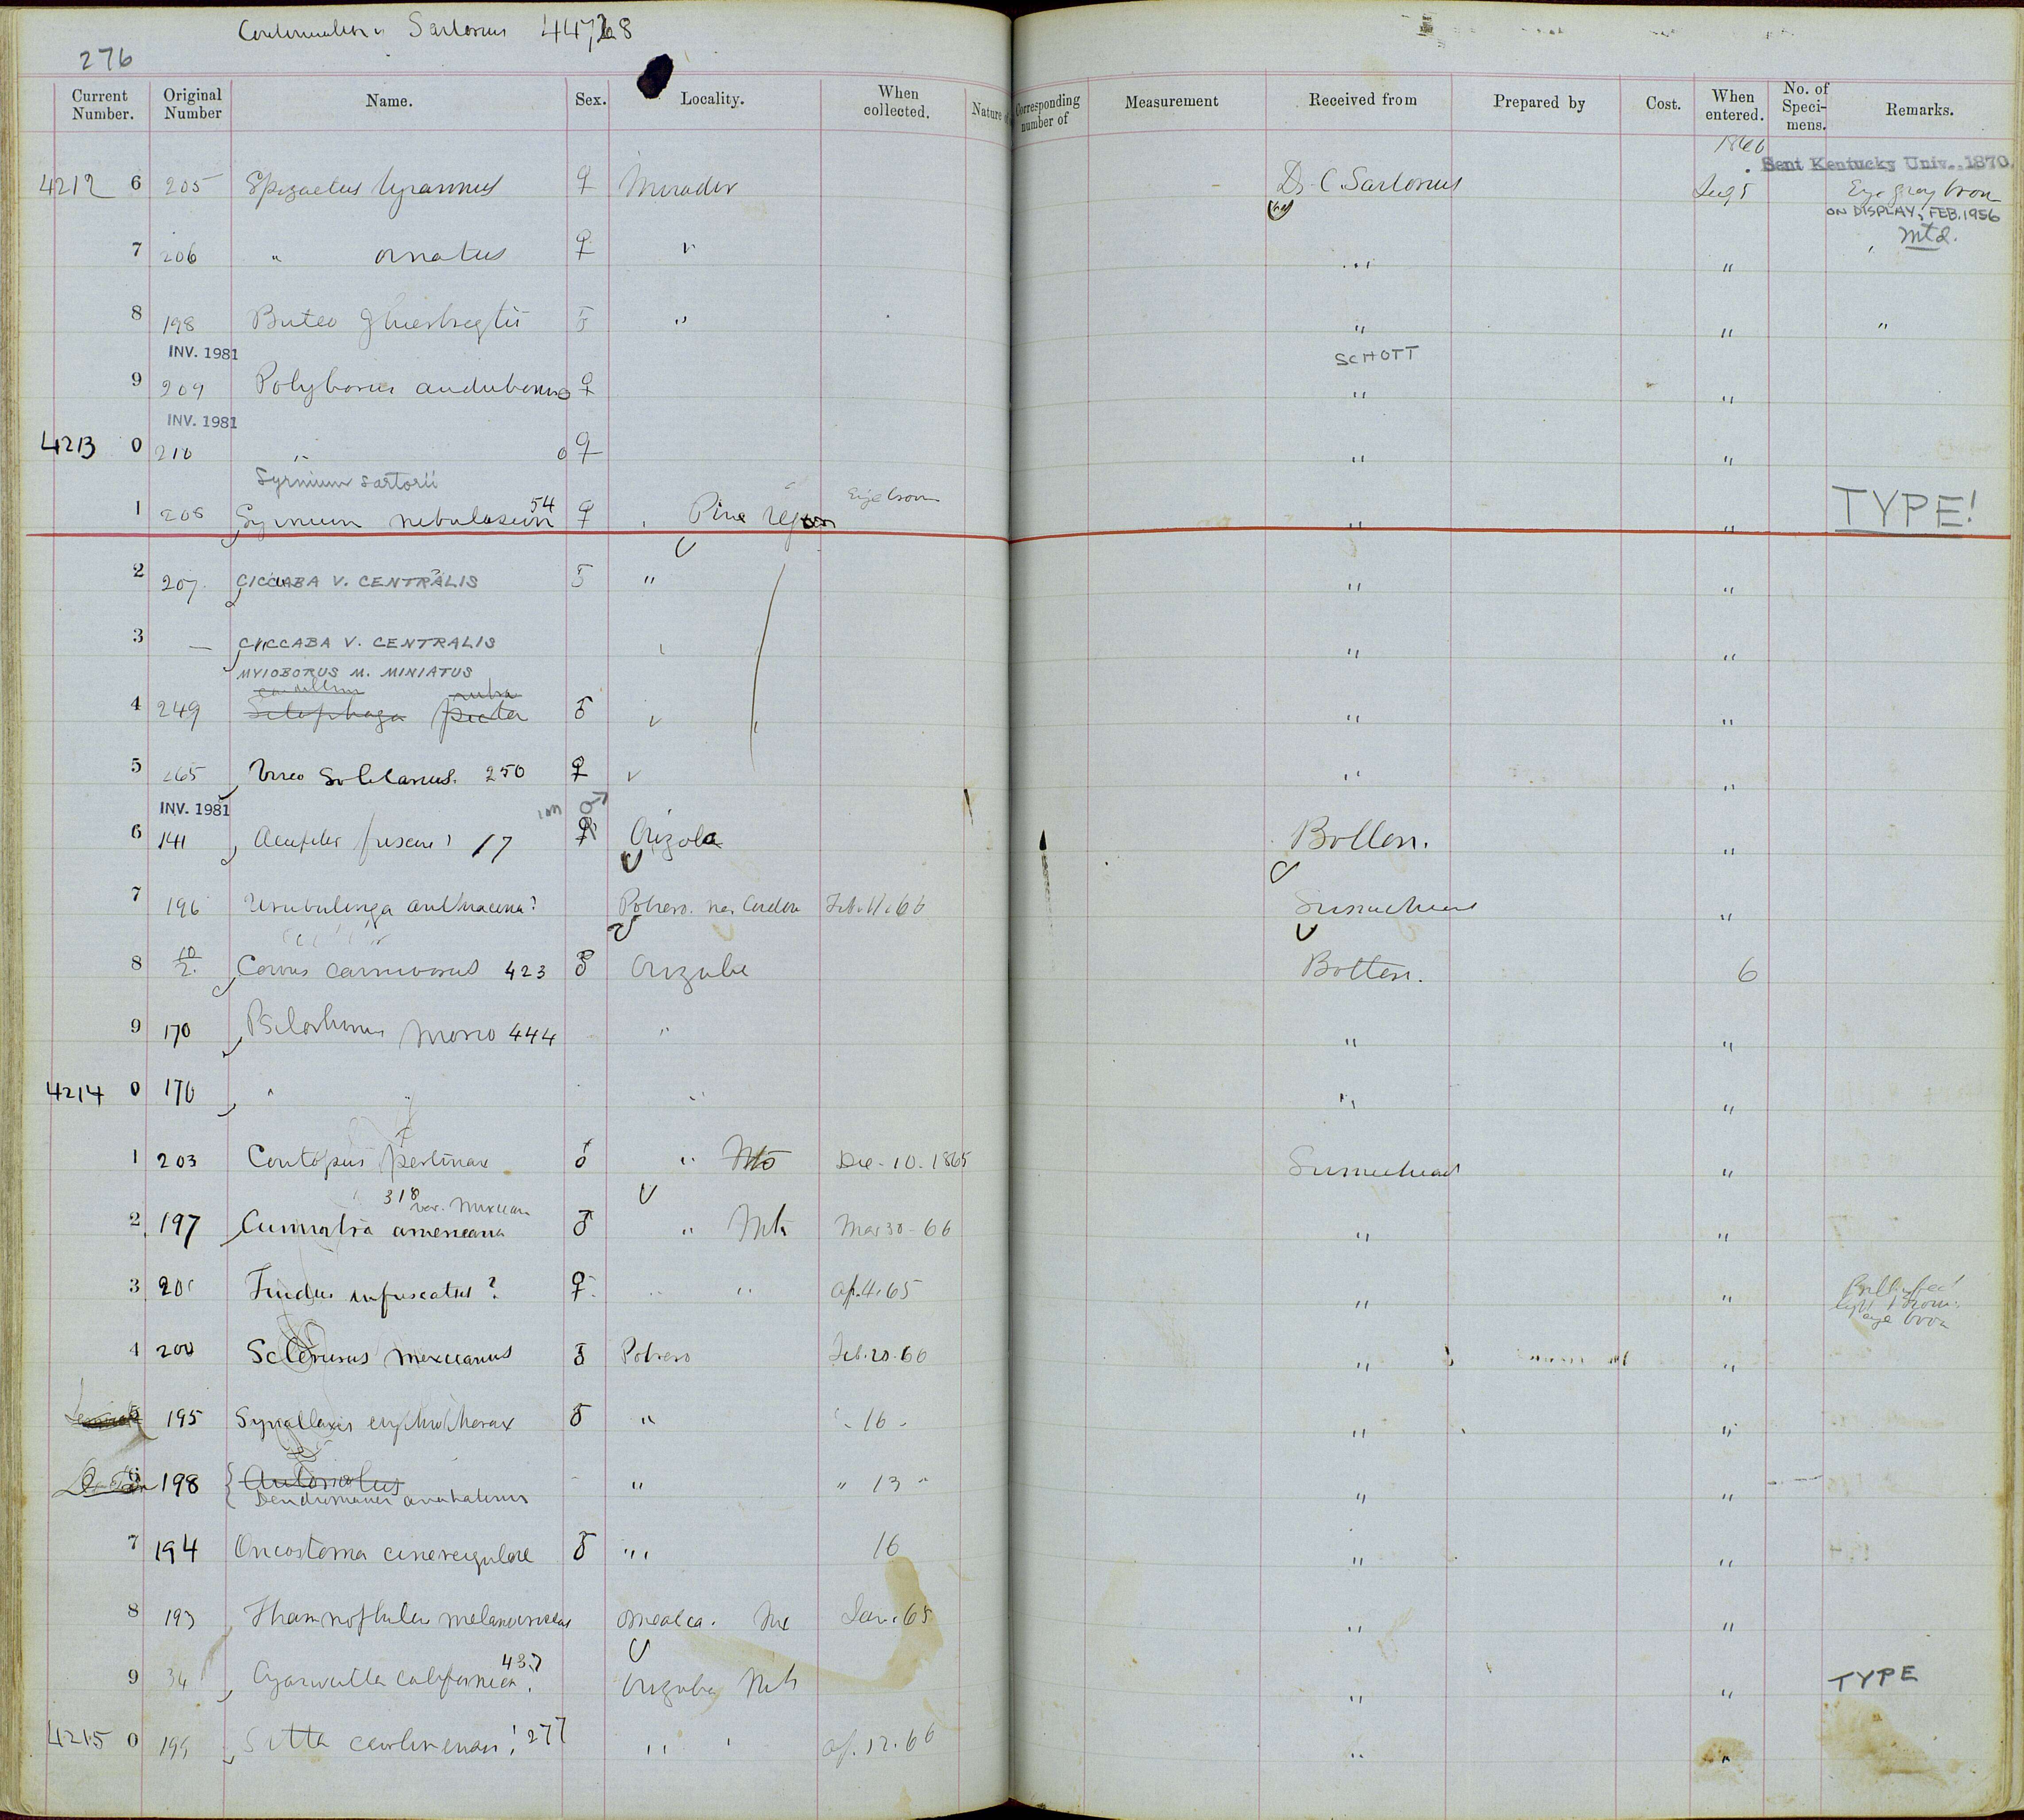 276 Sartorius 447
Current Number. Original Number Name. Sex. Locality. When collected. Nature Corresponding number of Measurement Received from Prepared by Cost. When entered. No. of Speci-mens. Remarks.
1866 Sent Kentucky Univ., 1870.
4212 6 205 Spizaetus tyrannus ♀ Mirador Dr. C. Sartorius 5 Eye gray brown
ON DISPLAY, FEB. 1956
Mtd.
7 206 " ornatus ♀ " " "
8 198 Buteo ghiesbreghtii " " " "
INV. 1981 SCHOTT
9 209 Polyborus ♀ " "
INV. 1981
4213 0 210 " ♀ " "
Syrnium sartorii Eye brown
1 208 Syrnium nebulosum 54 ♀ Pine region " " TYPE!
2 207 CICCABA V. CENTRALIS " " "
3 — CICCABA V. CENTRALIS " "
MYIOBORUS M. MINIATUS
rubra
4 249 Setophaga picta ♂ " "
5 265 Vireo solitarius. 250 ♀ " "
INV. 1981
6 141 Accipiter fuscus 17 Orizaba Botteri. "
7 196 Urubitinga anthracina? Potrero. Cordova Feb. 11. 66 Sumichrast "
8 10/2. Corvus carnivorus 423 Orizaba Botteri. 6
9 170 Psilorhinus morio 444 " " "
4214 0 170 " " " " "
1 203 Contopus pertinax ♂ " Mts Dec. 10. 1865 Sumichrast "
318 var. Mexican
2 197 Certhia americana ♂ " Mts Mar 30 - 66 " "
3 Turdus infuscatus? ♀ " " Ap. 4. 65 " "
eye brown
4 200 Sclerurus mexicanus ♂ Potrero Feb. 20. 66 " "
5 195 Synallaxis erythrothorax ♂ " " 16 " " "
198 Automolus
Dendromanes anabatinus " " 13 " " "
7 194 Oncostoma cinereigulare ♂ " 16 " "
8 193 Thamnophilus Omealca. Jan. 65 " "
9 34 Cyanocitta californica. 437 Orizaba Mts " " TYPE
4215 0 199 Sitta carolinensis! 277 " " Ap. 12. 66 " "